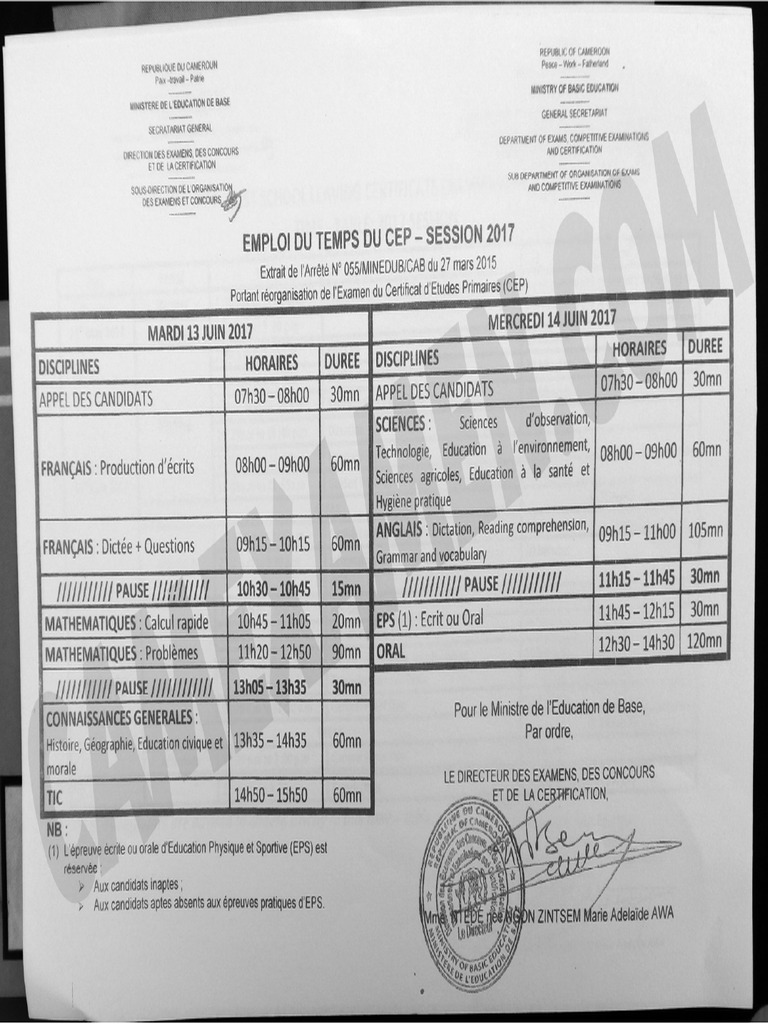 REPUBLIQUE DU CAMEROUN
Paix -travail – Patrie
MINISTERE DE L'EDUCATION DE BASE
SECRATARIAT GENERAL
DIRECTION DES EXAMENS, DES CONCOURS
ET DE LA CERTIFICATION
SOUS-DIRECTION DE L'ORGANISATION
DES EXAMENS ET CONCOURS
REPUBLIC OF CAMEROON
Peace – Work – Fatherland
MINISTRY OF BASIC EDUCATION
GENERAL SECRETARIAT
DEPARTMENT OF EXAMS, COMPETITIVE EXAMINATIONS
AND CERTIFICATION
SUB DEPARTMENT OF ORGANISATION OF EXAMS
AND COMPETITIVE EXAMINATIONS
EMPLOI DU TEMPS DU CEP – SESSION 2017
Extrait de l'Arrêté N° 055/MINEDUB/CAB du 27 mars 2015
Portant réorganisation de l'Examen du Certificat d'Etudes Primaires (CEP)
MARDI 13 JUIN 2017
DISCIPLINES HORAIRES DUREE
APPEL DES CANDIDATS 07h30 – 08h00 30mn
FRANÇAIS : Production d'écrits 08h00 – 09h00 60mn
FRANÇAIS : Dictée + Questions 09h15 – 10h15 60mn
/////////// PAUSE /////////// 10h30 – 10h45 15mn
MATHEMATIQUES : Calcul rapide 10h45 – 11h05 20mn
MATHEMATIQUES : Problèmes 11h20 – 12h50 90mn
/////////// PAUSE //////////// 13h05 – 13h35 30mn
CONNAISSANCES GENERALES :
Histoire, Géographie, Education civique et 13h35 – 14h35 60mn
morale
TIC 14h50 – 15h50 60mn
MERCREDI 14 JUIN 2017
DISCIPLINES HORAIRES DUREE
APPEL DES CANDIDATS 07h30 – 08h00 30mn
SCIENCES : Sciences d'observation,
Technologie, Education à l'environnement, 08h00 – 09h00 60mn
Sciences agricoles, Education à la santé et
Hygiène pratique
ANGLAIS : Dictation, Reading comprehension, 09h15 – 11h00 105mn
Grammar and vocabulary
/////////// PAUSE /////////// 11h15 – 11h45 30mn
EPS (1) : Ecrit ou Oral 11h45 – 12h15 30mn
ORAL 12h30 – 14h30 120mn
NB :
(1) L'épreuve écrite ou orale d'Education Physique et Sportive (EPS) est
réservée :
➢ Aux candidats inaptes ;
➢ Aux candidats aptes absents aux épreuves pratiques d'EPS.
Pour le Ministre de l'Education de Base,
Par ordre,
LE DIRECTEUR DES EXAMENS, DES CONCOURS
ET DE LA CERTIFICATION,
Mme NTEDE née NGON ZINTSEM Marie Adelaïde AWA
REPUBLIQUE DU CAMEROUN
REPUBLIC OF CAMEROON
Le Directeur
MINISTRY OF BASIC EDUCATION
MINISTERE DE L'EDUCATION DE BASE
CAMEXAMEN.COM